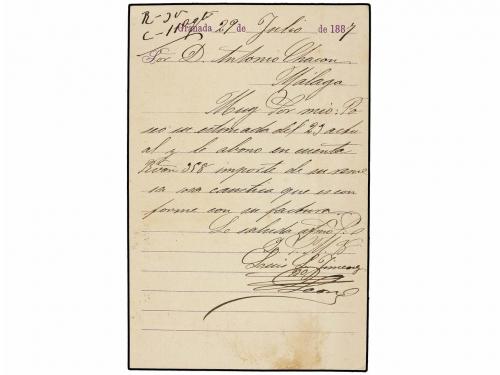 R-
C-
Granada 29 de Julio de 1887
Sor D. Antonio Chacon
Málaga
Muy Sor mio: Po
seo su estimada del 23 actu
al y le abono en cuenta
Rvon 358 importe de su reme
sa cuantia que es con
forme con su factura.
Le saluda afmo
Luis Jimenez